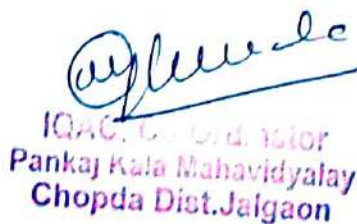 IQAC, Co Ordinator
Pankaj Kala Mahavidyalay
Chopda Dist.Jalgaon